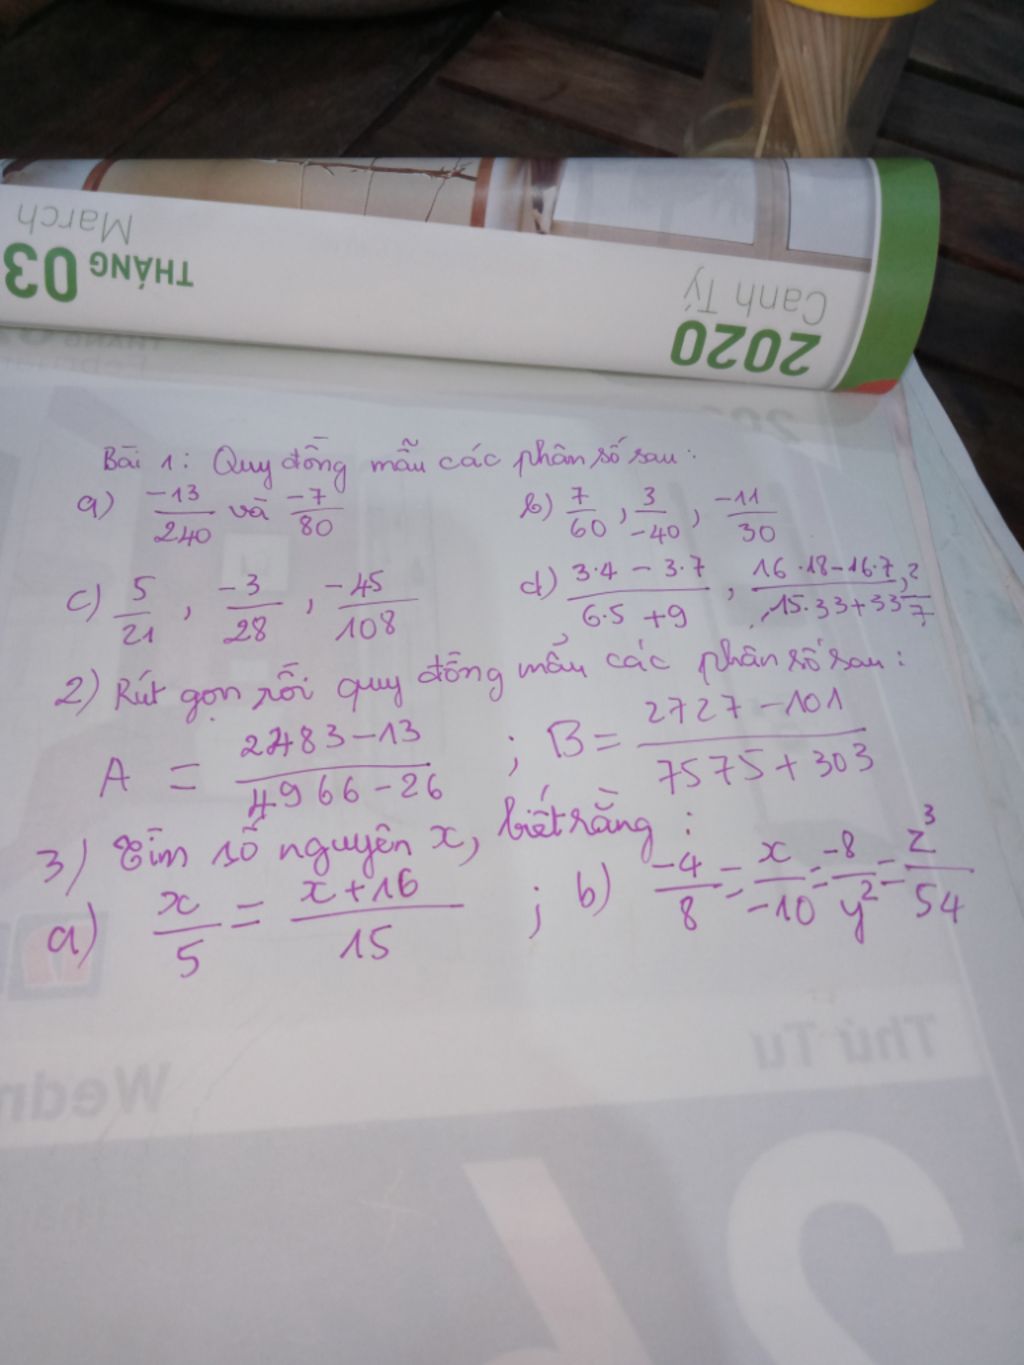 March
THÁNG 03
Canh Tý
2020
Bài 1: Quy đồng mẫu các phân số sau:
a) -13/240 và -7/80 b) 7/60, 3/-40, -11/30
c) 5/21, -3/28, -45/108 d) 3·4 - 3·7/6·5 + 9, 16·18 - 16·7/15·33 + 33, 2/7
2) Rút gọn rồi quy đồng mẫu các phân số sau:
A = 2483 - 13/4966 - 26 ; B = 2727 - 101/7575 + 303
3) Tìm số nguyên x, biết rằng:
a) x/5 = x + 16/15 ; b) -4/8 = x/-10 = -8/y² = z³/54
Thứ Tư
Wedn